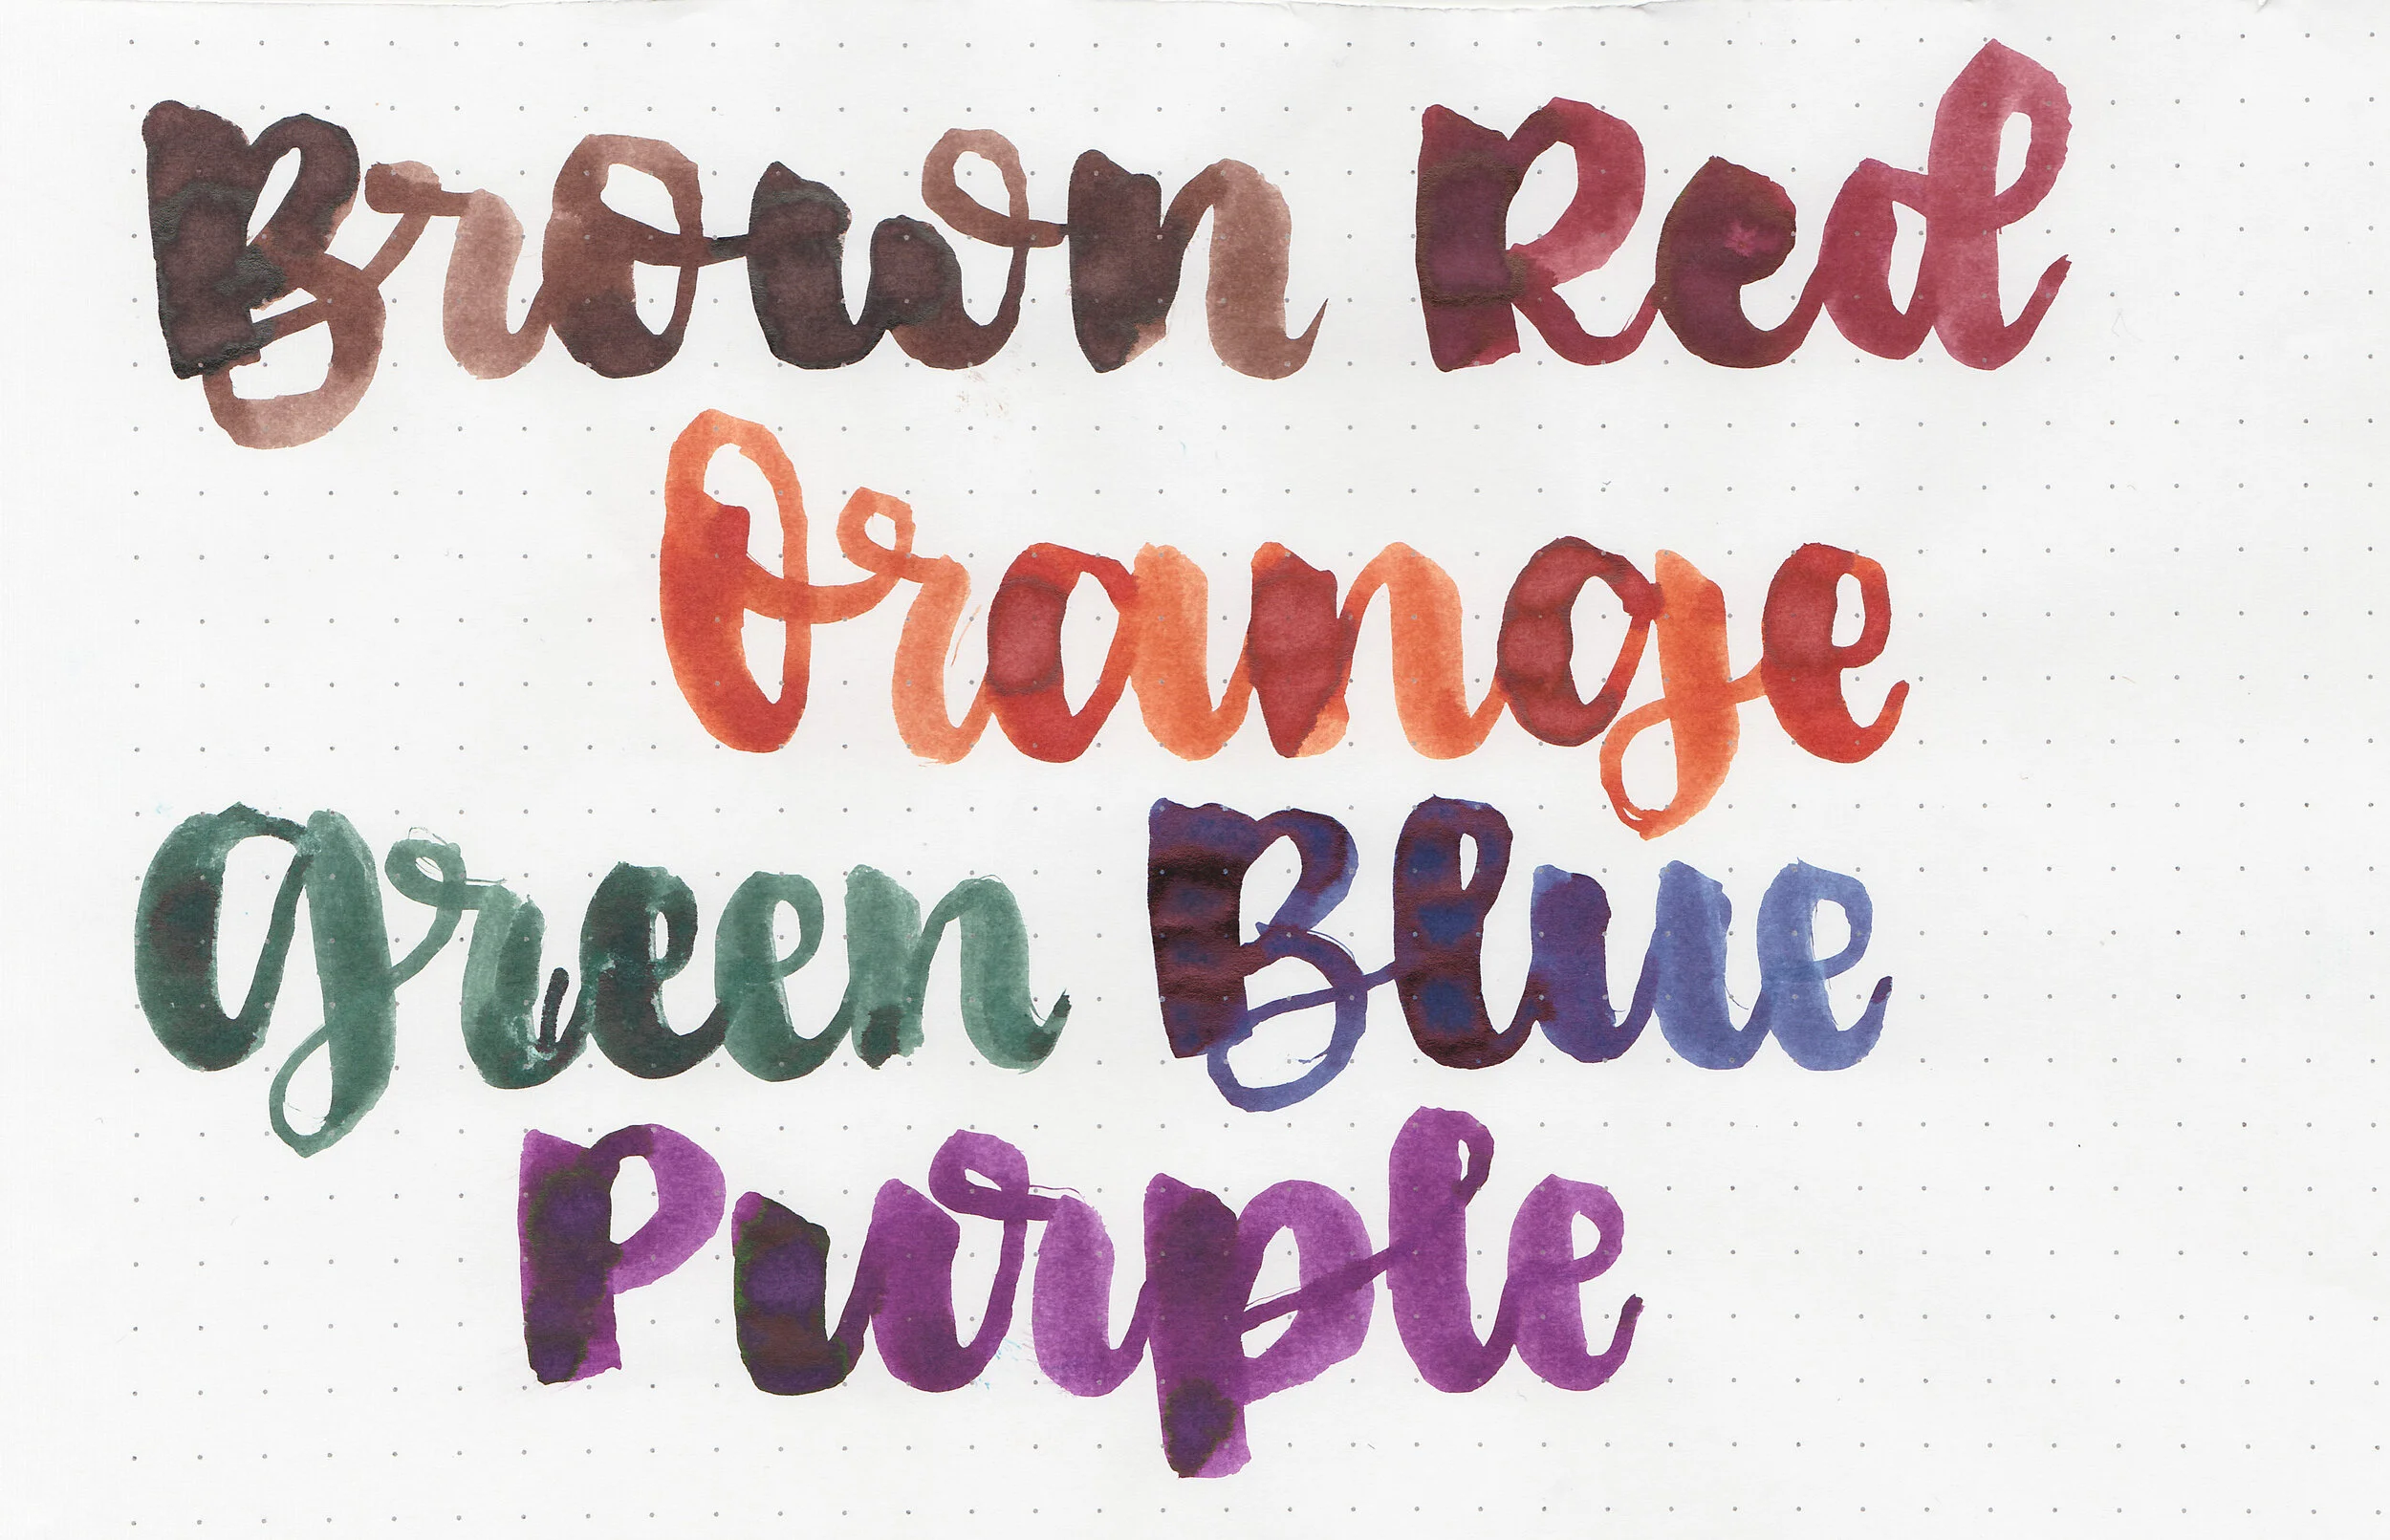 Brown Red
Orange
Green Blue
Purple